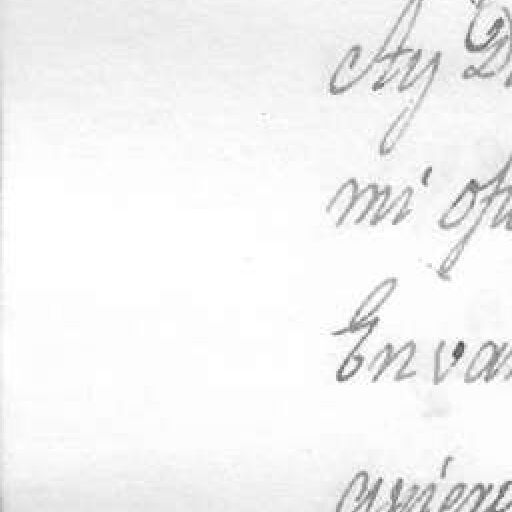 Ay D
mi ofr
En var
quiero